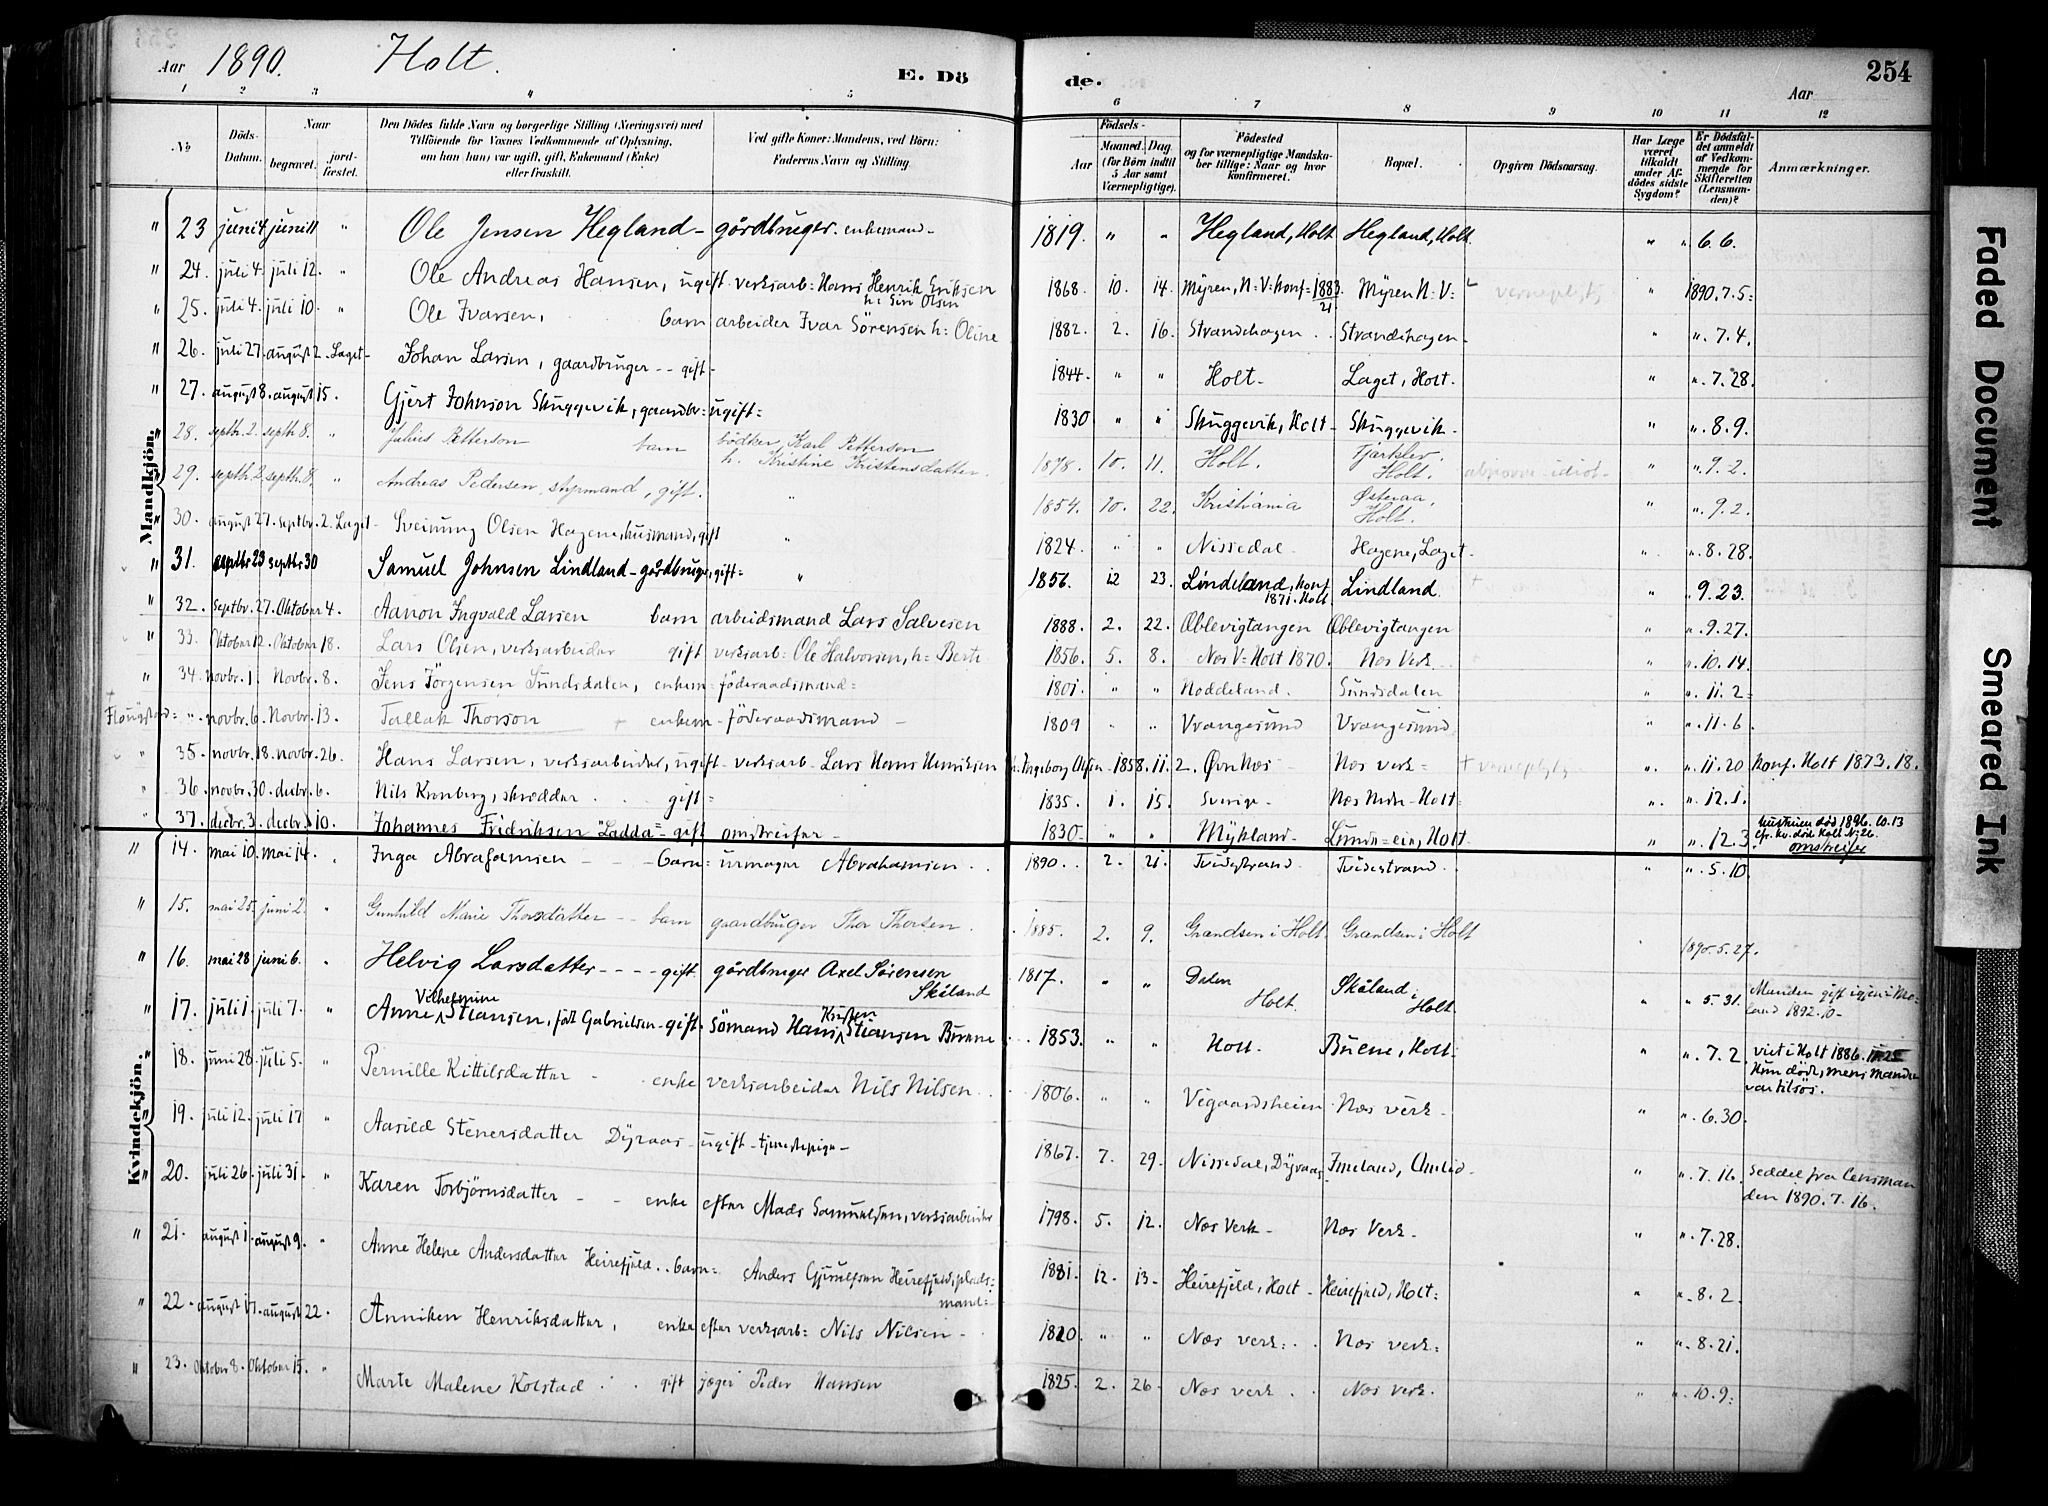 Aar 1890. Holt. E. Dö de. Aar 254
1 2 3 4 5 6 7 8 9 10 11 12
No Döds-Datum. Naar begravet. jordfæstet. Den Dödes fulde Navn og borgerlige Stilling (Næringsvei) med Tilföiende for Voxnes Vedkommende af Oplysning, om han (hun) var ugift, gift, Enkemand (Enke) eller fraskilt. Ved gifte Koner: Mandens, ved Börn: Faderens Navn og Stilling. Födsels- Aar Maaned. Dag. (for Börn indtil 5 Aar samt Værnepligtige). Födested og for værnepligtige Mandskaber tillige: Naar og hvor konfirmeret. Bopæl. Opgiven Dödsaarsag. Har Læge været tilkaldt under Afdödes sidste Sygdom? Er Dödsfaldet anmeldt af Vedkommende for Skifteretten (Lensmanden)? Anmærkninger.
Mandkjön.
" 23 juni 4 juni 11 " Ole Jensen Hegland - gårdbruger. enkemand - 1819 " " Hegland, Holt Hegland, Holt. " " 6. 6.
" 24. juli 4. juli 12. " Ole Andreas Hansen, ugift. verksarb= Hans Henrik Eriksen 1868 10. 14. Myren, N=V= konf= 1883. Myren N=V= vernepligtig " 1890. 7. 5=
" 25. juli 4. juli 10. " Ole Ivarsen, barn arbeider Ivar Sörensen h= Oline 1882. 2. 16. Strandehagen . . Strandehagen - " ". 7. 4.
" 26. juli 27. august 2. Laget - Johan Larsen, gaardbruger - - gift - 1844 - " " Holt - Laget, Holt. " ". 7. 28.
" 27. august 8. august 15. Gjert Johnson Skuggevik, gaardbr= ugift= 1830 " " Skuggevik, Holt - Skuggevik - " ". 8. 9.
" 28. septbr. 2. septbr. 8. " Julius Petterson barn bödker, Karl Petterson
h. Kristine Kristensdatter. 1878. 10. 11. Holt. Tjærklev. Holt. idiot - " ". 9. 2.
" 29. septbr. 2. septbr. 8. " Andreas Pedersen, styrmand, gift. " 1854. 10. 22. Kristiania Østeraa, Holt. " ". 9. 2.
" 30. august 27. septbr. 2. Laget - Sveinung Olsen Hagene, husmand, gift " 1824. " " Nissedal - Hagene, Laget - " ". 8. 28.
" 31. septbr 23 septbr 30 Samuel Johnsen Lindland - gårdbruger, gift= " 1856. 12 23. Lindeland, konf 1871. Holt. Lindland. " " 9. 23.
" 32. septbr. 27. Oktober 4. Aanon Ingvald Larsen barn arbeidsmand Lars Salvesen 1888. 2. 22. Øblevigtangen Øblevigtangen " ". 9. 27.
" 33. Oktober 12. Oktober 18. Lars Olsen, verksarbeider gift verksarb= Ole Halvorsen, h= Berte 1856. 5. 8. Næs V= Holt 1870. Næs Verk . " ". 10. 14.
" 34. novbr. 1. Novbr. 8. Jens Jörgensen Sundsdalen, enkem= föderaadsmand= 1801. " " Noddeland. Sundsdalen " ". 11. 2=
Flougstad= ". novbr. 6. Novbr. 13. Tallak Thorson + enkem - föderaadsmand - 1809 " " Vrangesund Vrangesund " ". 11. 6
" 35. novbr. 18. novbr. 26. Hans Larsen, verksarbeider, ugift - verksarb - Lars Hans Henriksen h. Ingeborg Olsen - 1858. 11. 2. Øvr. Næs - Næs verk= + vernepligtig ". ". 11. 20 konf. Holt 1873. 18.
" 36. novbr. 30. decbr. 6. Nils Kronberg, skrædder . . gift= 1835. 1. 15. Sverige - Næs - Holt= ". ". 12. 1.
" 37. decbr. 3. decbr. 10. Johannes Fridriksen "Ladda"= gift omstreifer - 1830 - " " Mykland - Holt " ". 12. 3. hustruen död 1896. 10. 13
cfr. kv. döde Holt N: 26.
omstreifer
Kvindekjön.
" 14. mai 10. mai 14. " Inga Abrahamsen - - - barn= urmager Abrahamsen . . 1890. . 2. 21. Tvedestrand. Tvedestrand . " ". 5. 10.
" 15. mai 25. juni 2. " Gunhild Marie Thorsdatter - - barn gaardbruger Thor Thorsen . 1885. 2. 9. Grændsen i Holt Grændsen i Holt 1890. 5. 27.
" 16. mai 28 juni 6. " Helvig Larsdatter - - - - gift gårdbruger Axel Sörensen Skåland 1817. " " Dalen Holt. Skåland i Holt. " " 5. 31. Manden gift igjen i
land 1892. 10 -
" 17. juli 1. juli 7. " Anne Vilhelmine Stiansen, föd Gabrielsen - gift - Sömand Hans Kristen Stiansen Buene . . 1853. " " Holt. Buene, Holt. " ". 7. 2. viet i Holt 1886.
Hun döde, mens Manden
var tilsös.
" 18. juni 28. juli 5. " Pernille Kittilsdatter - . enke verksarbeider Nils Nilsen . . 1806. " " Vegaardsheien Næs verk - " ". 6. 30.
" 19. juli 12. juli 17 " Aasild Stenersdatter Dyraas - ugift - tjenestepige - 1867. 7. 29. Nissedal, Dyraas Imeland, Omlid - " ". 7. 16. seddel fra Lensman
den 1890. 7. 16.
" 20. juli 26. juli 31. " Karen Torbjörnsdatter - - enke efter Mads Samuelsen, verksarbeider 1798. 5. 12. Næs Verk - Næs Verk - " ". 7. 28.
" 21. august 1. august 9. " Anne Helene Andersdatter Heirefjeld . . barn= Anders Gjerulfsen Heirefjeld, plads=
mand= 1881. 12. 13. Heirefjeld, Holt - Heirefjeld, Holt= " ". 8. 2.
" 22. august 17. august 22. Anniken Henriksdatter, enke efter verksarb= Nils Nilsen - . 1820. " " Næs verk= . . Næs verk= " ". 8. 21.
" 23. Oktober 8. Oktober 15. " Marte Malene Kolstad . . gift jæger Peder Hansen 1825. 2. 26. Næs verk . . Næs verk. " ". 10. 9=
Faded Document
Smeared Ink